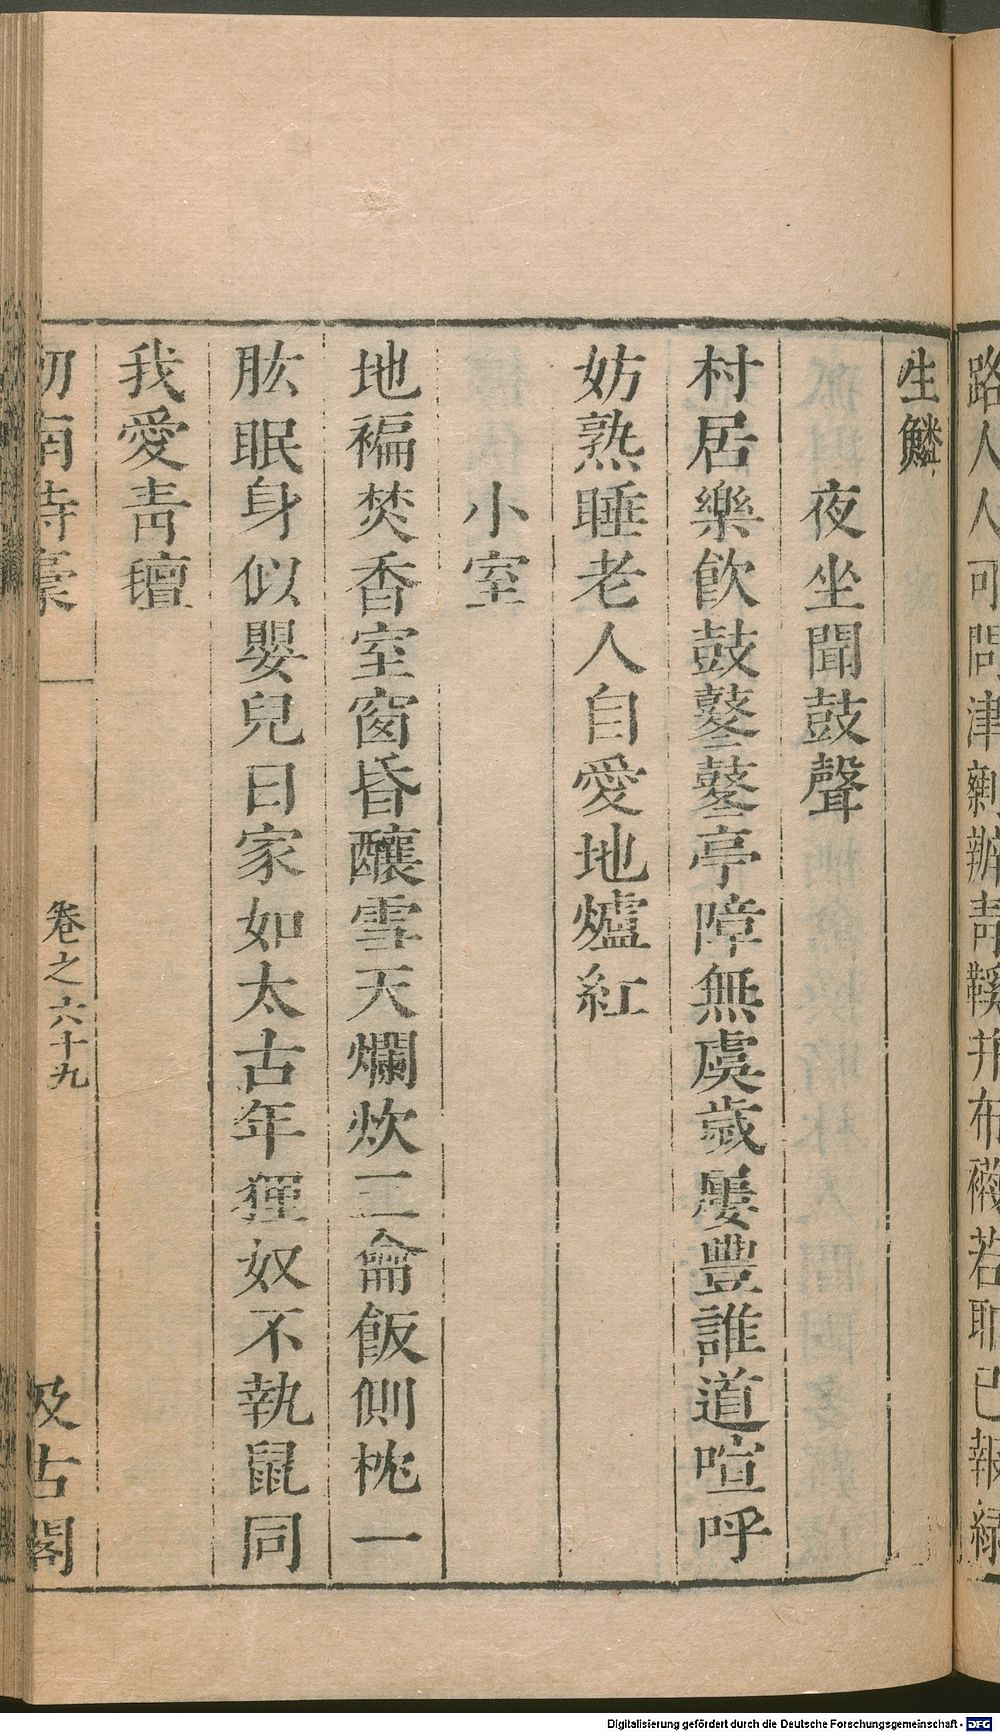 路人人可問津新辦青鞵并布襪若耶已報綠
生鱗
夜坐聞鼓聲
村居樂飲鼓鼕鼕亭障無虞歲屢豐誰道喧呼
妨熟睡老人自愛地爐紅
小室
地褊焚香室窗昏釀雪天爛炊二龠飯側枕一
肱眠身似嬰兒日家如太古年狸奴不執鼠同
我愛青氊
劒南詩稾
卷之六十九
汲古閣
Digitalisierung gefördert durch die Deutsche Forschungsgemeinschaft - DFG